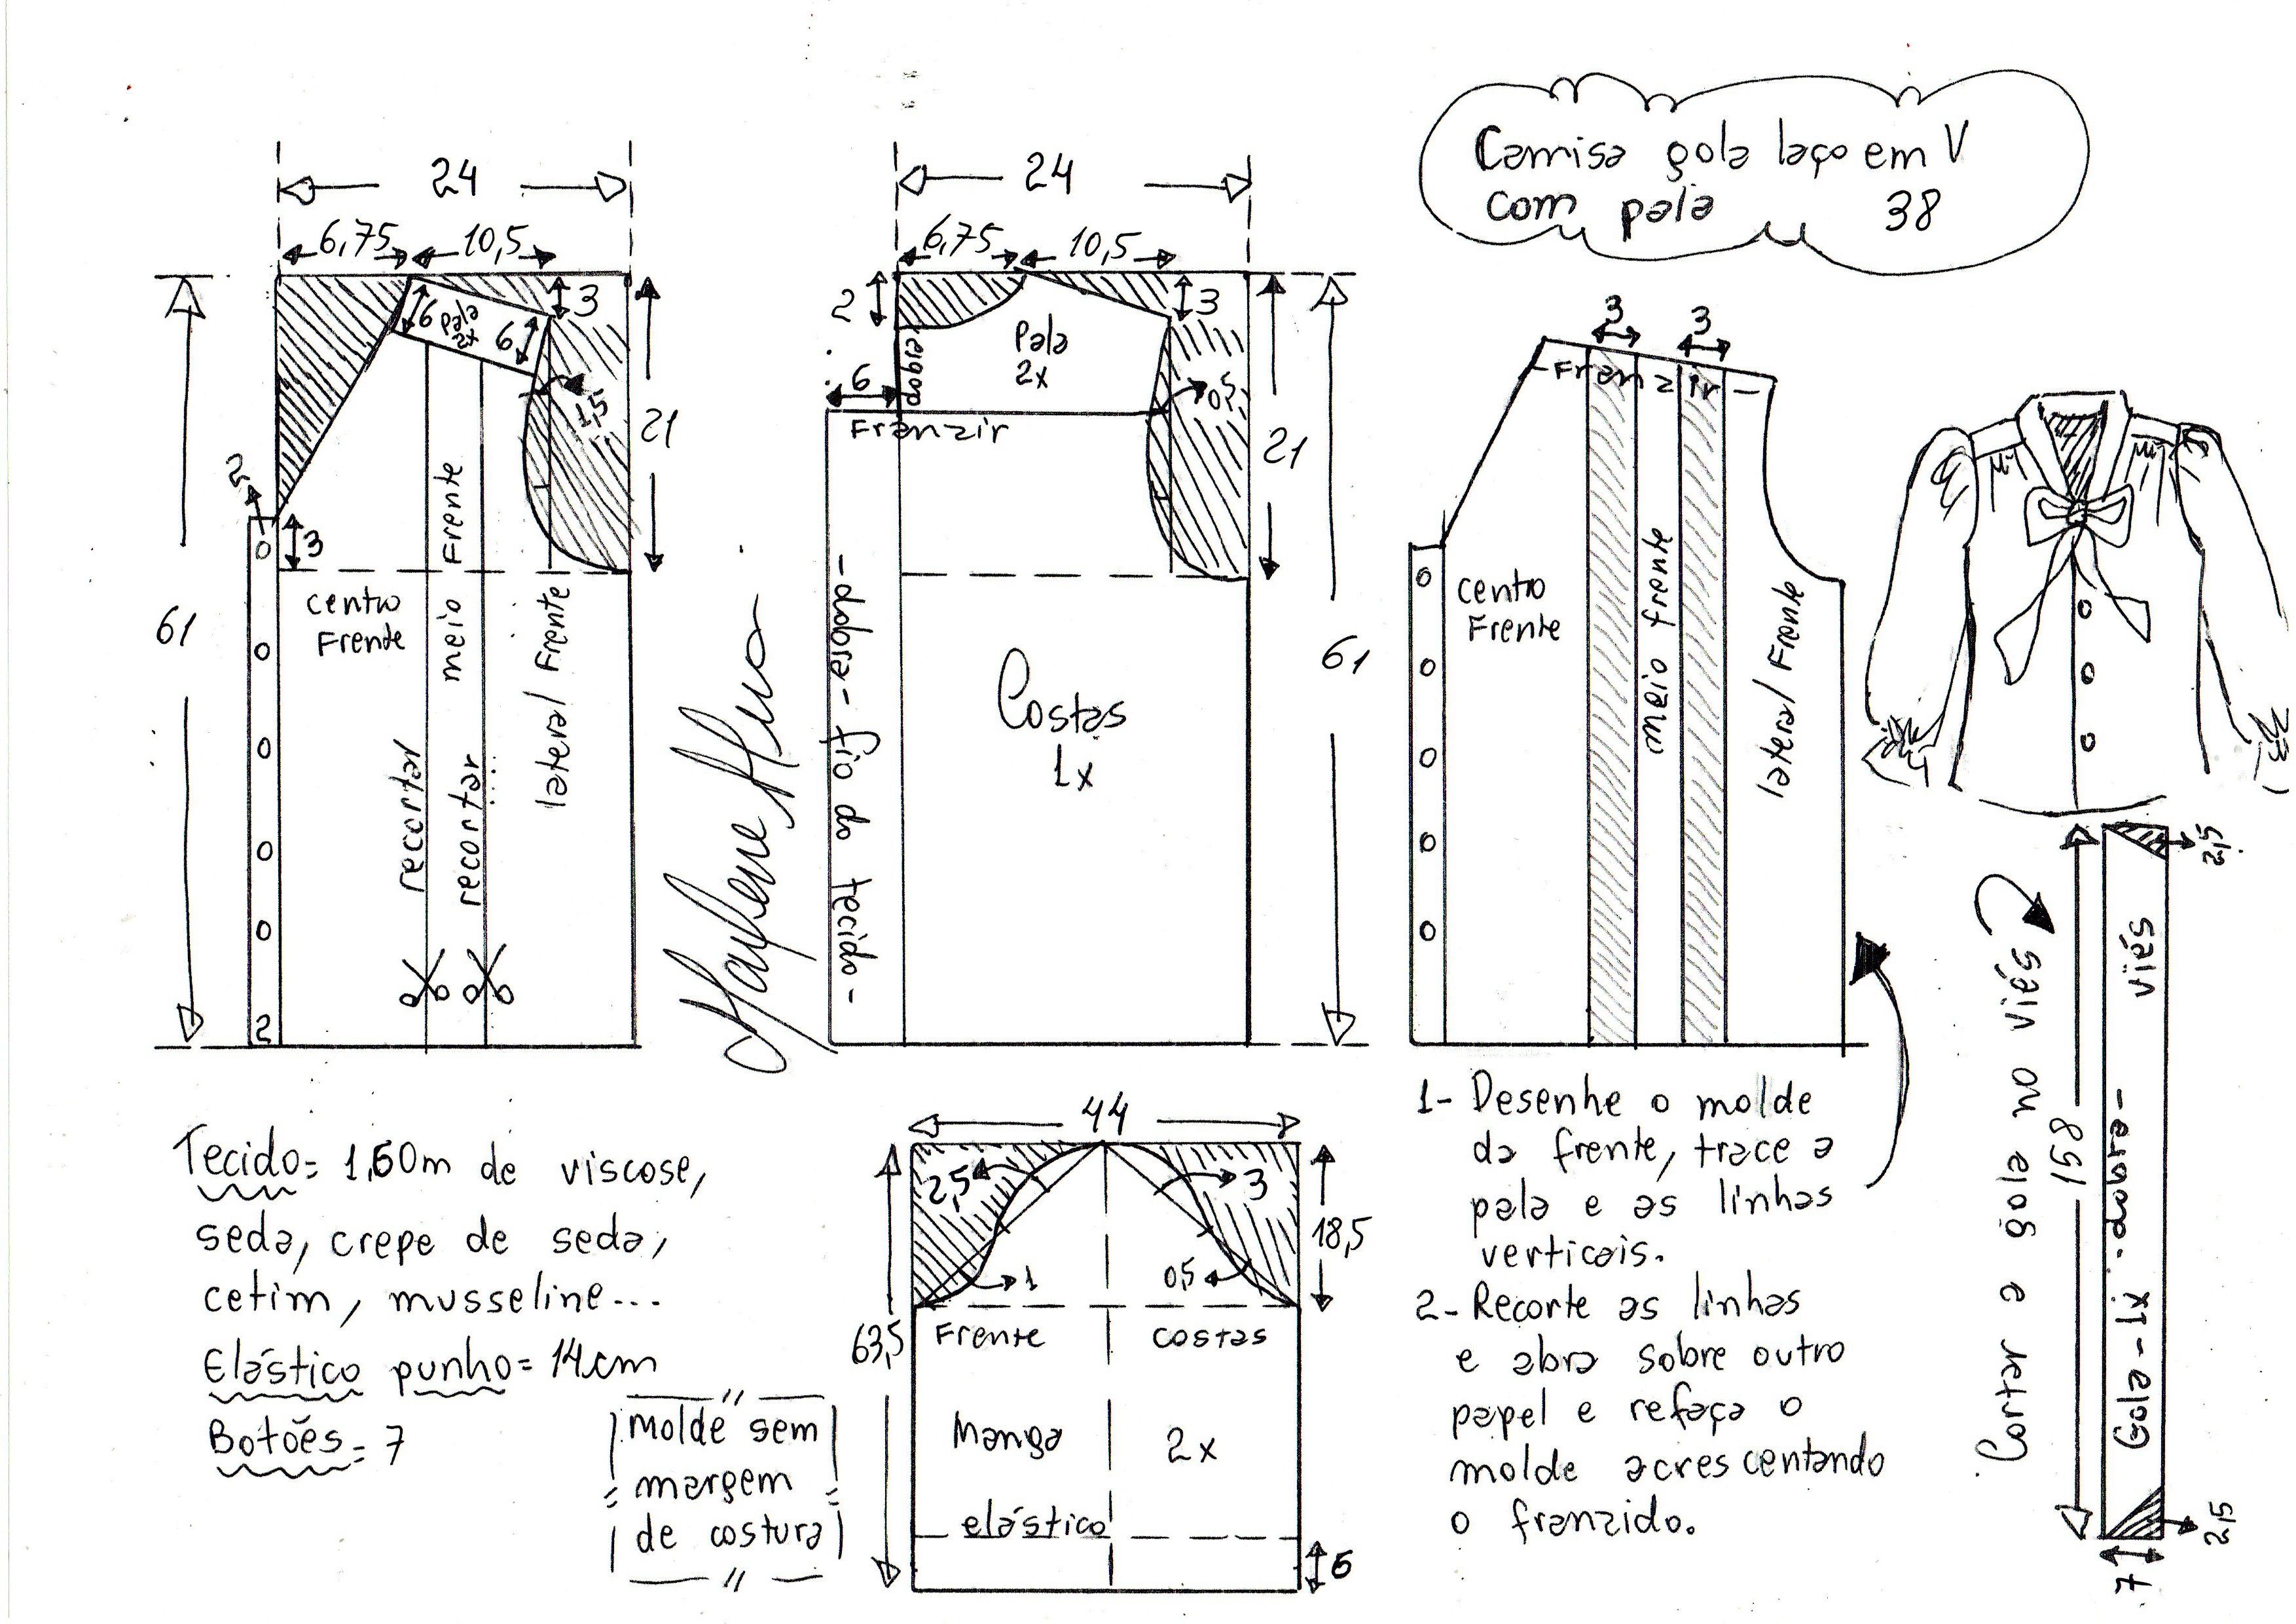 Camisa gola laço em V
com pala 38
24
6,75 10,5
3
6 Pala 2x 6
1,5
21
2
3
61
centro
Frente
meio Frente
lateral Frente
recortar
recortar...
2
24
6,75 10,5
2
3
dobra
Pala
2x
6
0,5
Franzir
21
61
-dobra- fio do tecido-
Costas
1x
3 3
-Franzir-
centro
Frente
meio frente
lateral Frente
2,5
Cortar a gola no viés
158
viés
dobra-
Gola-1x
2,5
7
Tecido= 1,60m de viscose,
seda, crepe de seda,
cetim, musseline...
Elástico punho= 14cm
Botões= 7
molde sem
margem
de costura
44
2,5
3
18,5
1
0,5
63,5
Frente costas
Manga 2x
elástico
6
1- Desenhe o molde
da frente, trace a
pala e as linhas
verticais.
2- Recorte as linhas
e abra sobre outro
papel e refaça o
molde acrescentando
o franzido.